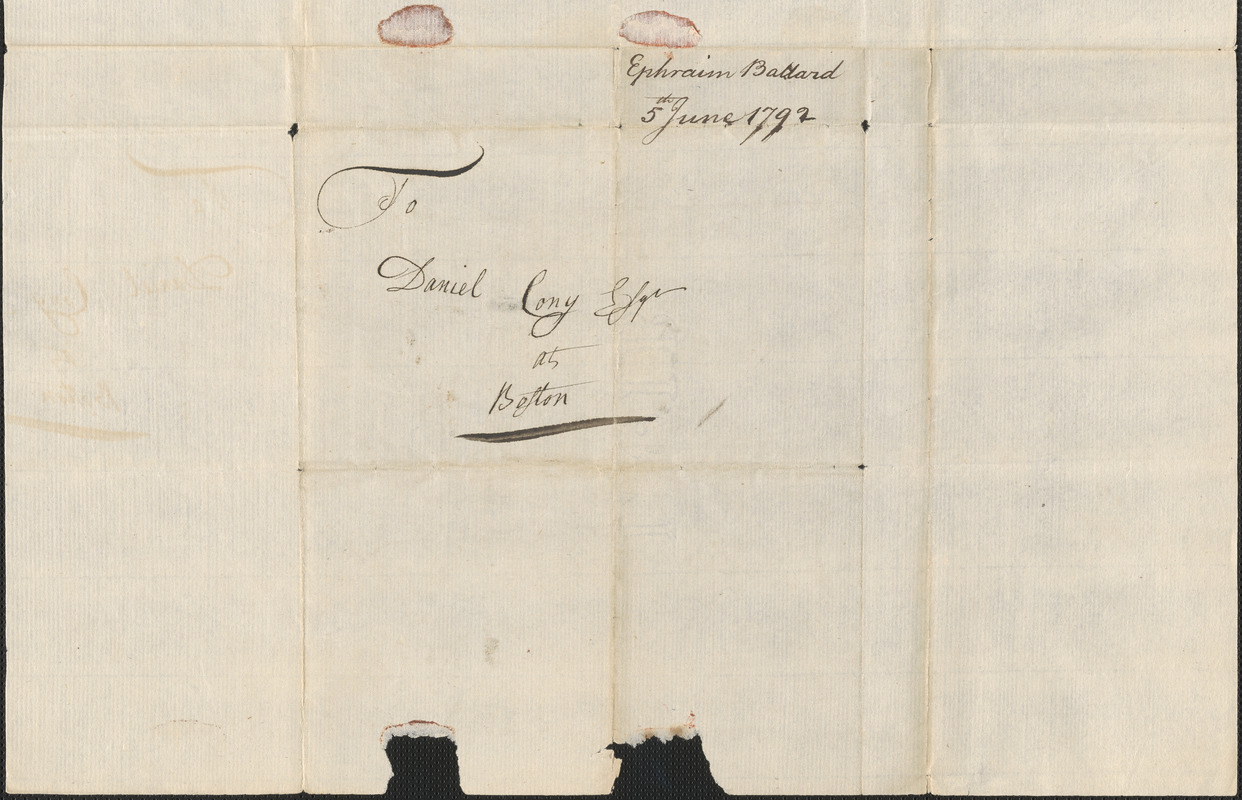 Ephraim Ballard
5th June 1792
To
Daniel Cony Esqr
at
Boston